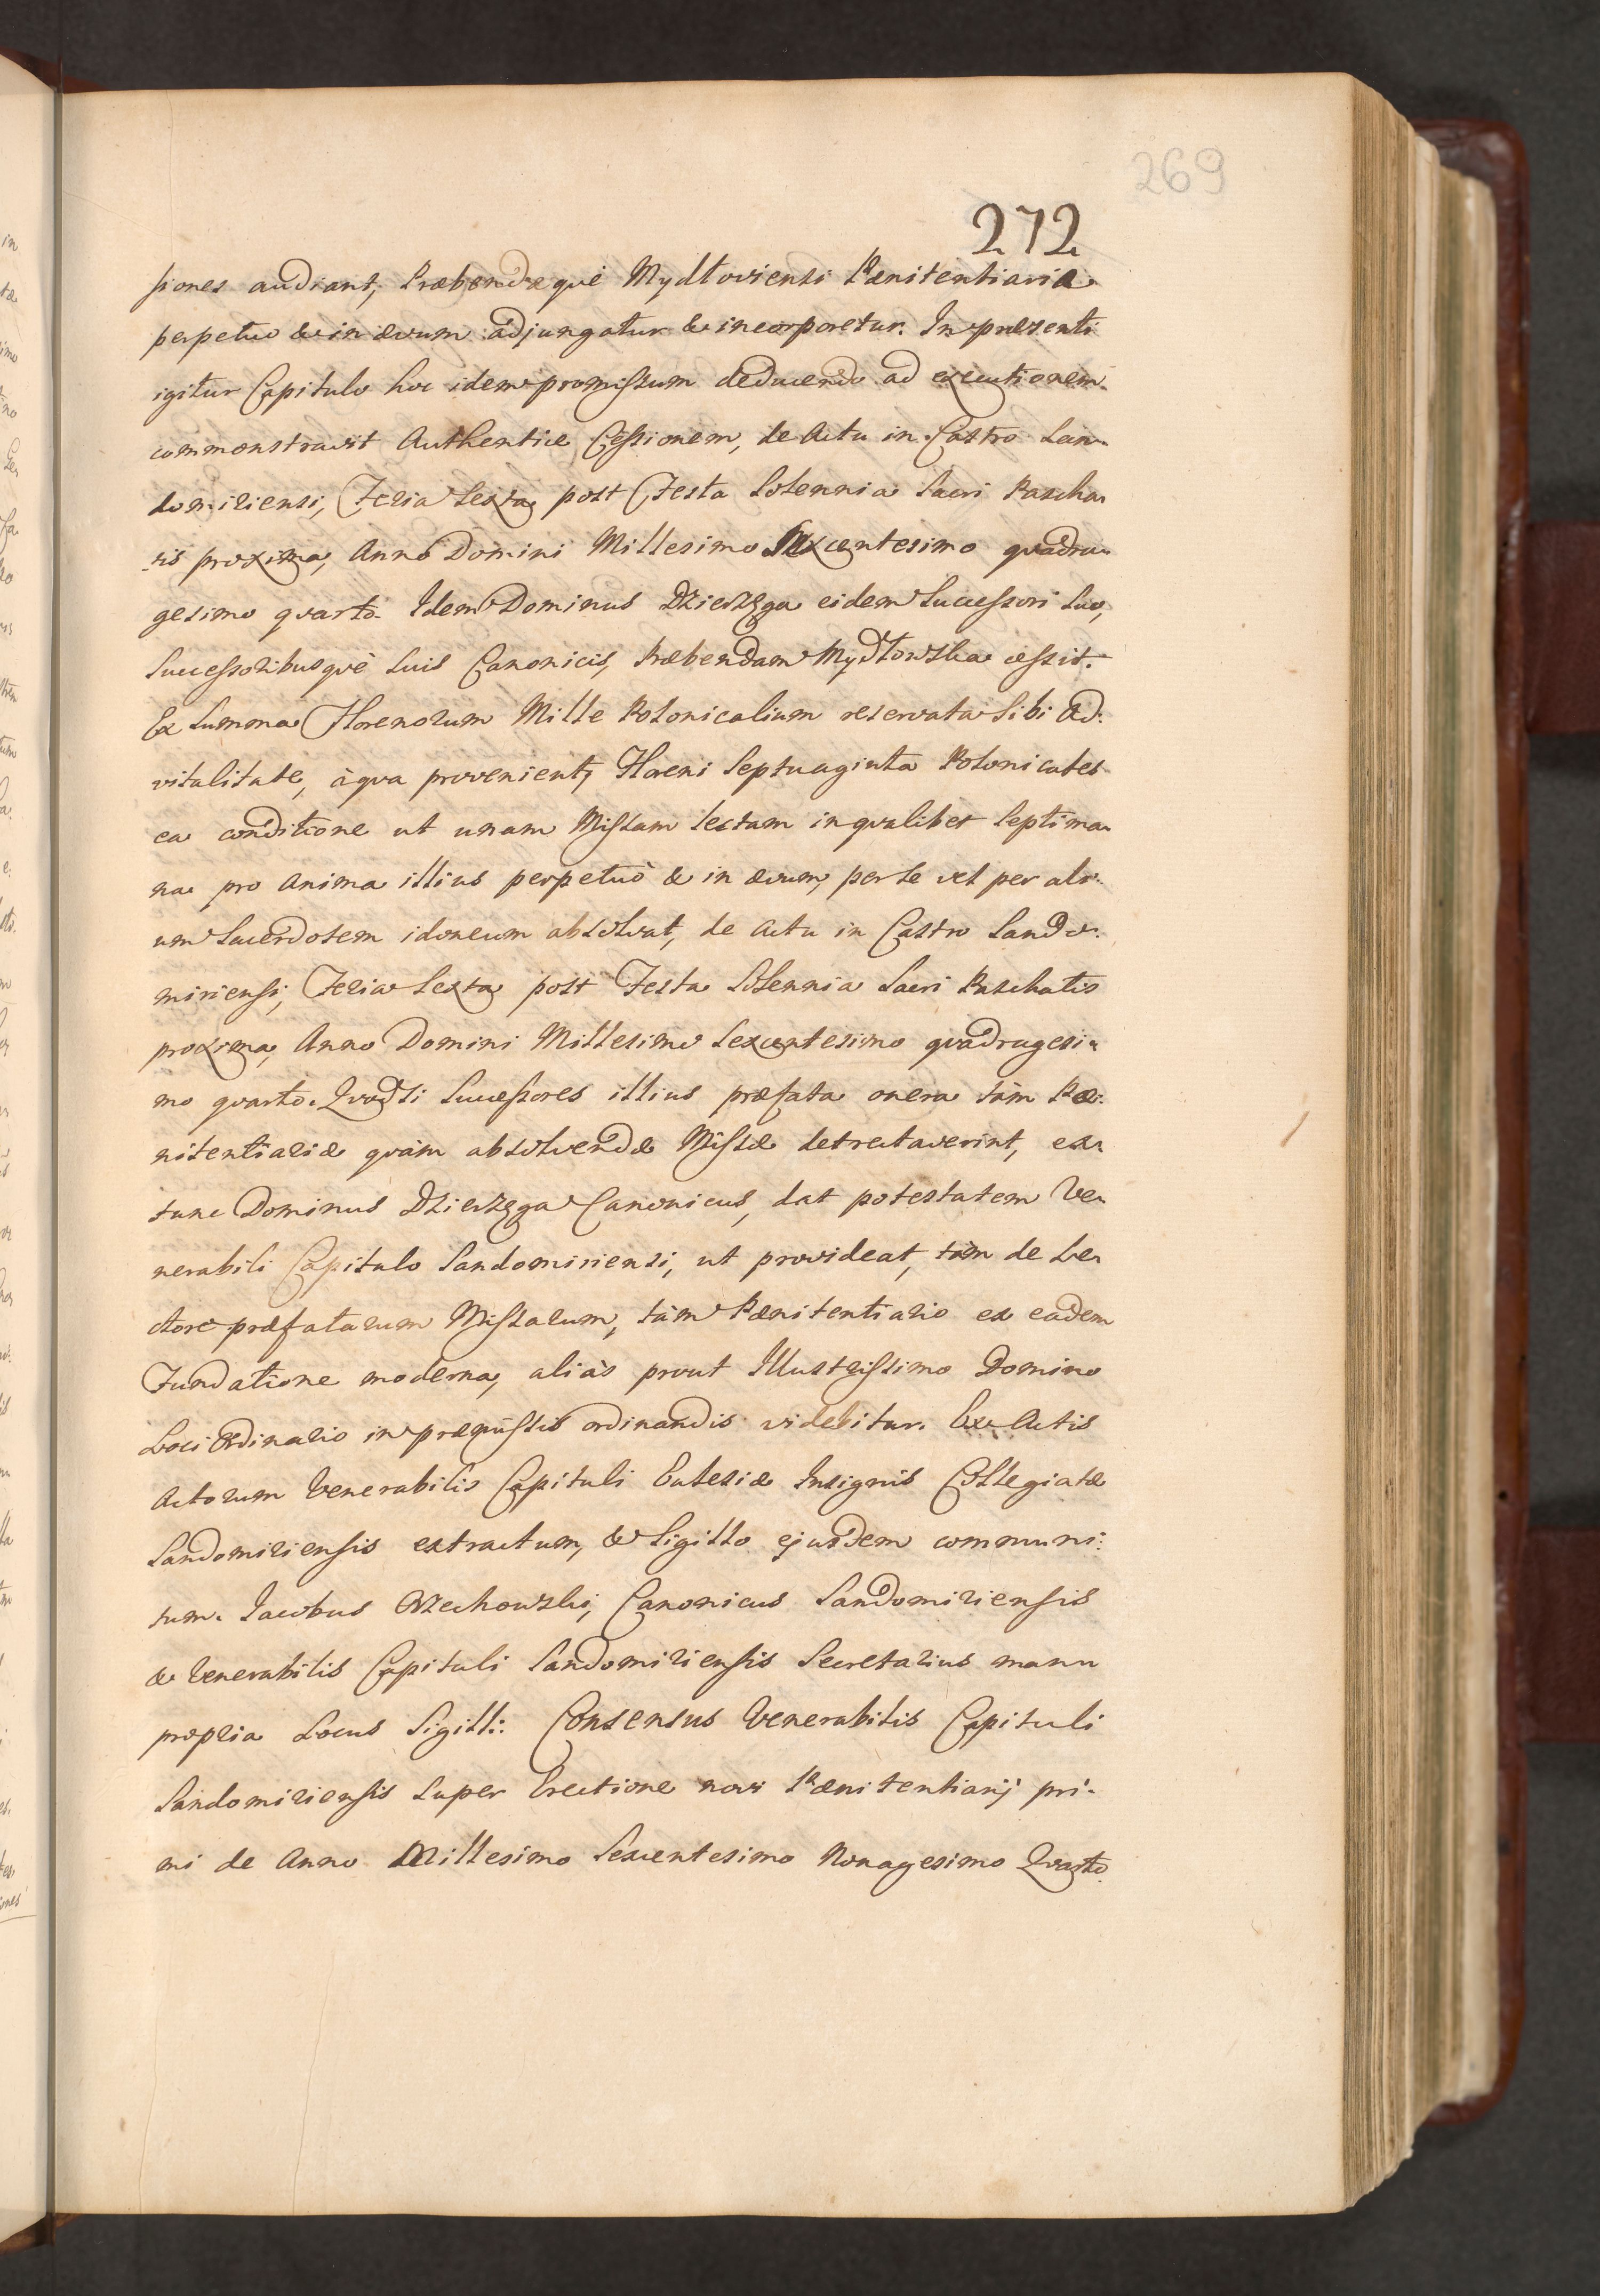 269
272
ssiones audiant, Præbendæquè Mydłoviensi Pœnitentiaria
perpetuo & in ævum adjungatur & incorporetur. In præsenti
igitur Capitulo hoc idem promissum deducendo ad executionem
commonstravit Authentice Cessionem, de Actu in Castro San-
domiriensi, Feria Sexta post Festa Solennia Sacri Pascha-
tis proxima, Anno Domini Millesimo Sexcentesimo quadra-
gesimo quarto. Idem Dominus Dzierzęga eidem Successori suo,
Successoribusquè suis Canonicis, Præbendam Mydłowska cessit.
Ex Summa Florenorum Mille Polonicalium reservata sibi Ad-
vitalitate, à qua provenient, Floreni Septuaginta Polonicales
ea conditione ut unam Missam lectam in qualibet Septima-
na pro Anima illius perpetuò & in ævum, per se vel per ali-
um Sacerdotem idoneum absolvat, de Actu in Castro Sando-
miriensi, Feria Sexta post Festa Solennia Sacri Paschatis
proxima, Anno Domini Millesimo Sexcentesimo quadragesi-
mo quarto. Quod si Successores illius præfata onera tàm Pœ-
nitentiariæ quàm absolvendæ Missæ detrectaverint, ex-
tunc Dominus Dzierzęga Canonicus, dat potestatem Ve-
nerabili Capitulo Sandomiriensi, ut provideat, tàm de Le-
ctore præfatarum Missarum, tàm Pœnitentiario ex eadem
Fundatione moderna, aliàs prout Illustrissimo Domino
Loci Ordinario in præmissis ordinandis videbitur. Ex Actis
Actorum Venerabilis Capituli Eclesiæ Insignis Collegiatæ
Sandomiriensis extractum, & Sigillo ejusdem communi-
tum. Jacobus Orzechowski, Canonicus Sandomiriensis
& Venerabilis Capituli Sandomiriensis Secretarius manu
propria Locus Sigilli: Consensus Venerabilis Capituli
Sandomiriensis super Erectione novi Pœnitentiarij pri-
mi de Anno Millesimo Sexcentesimo Nonagesimo Quarto.